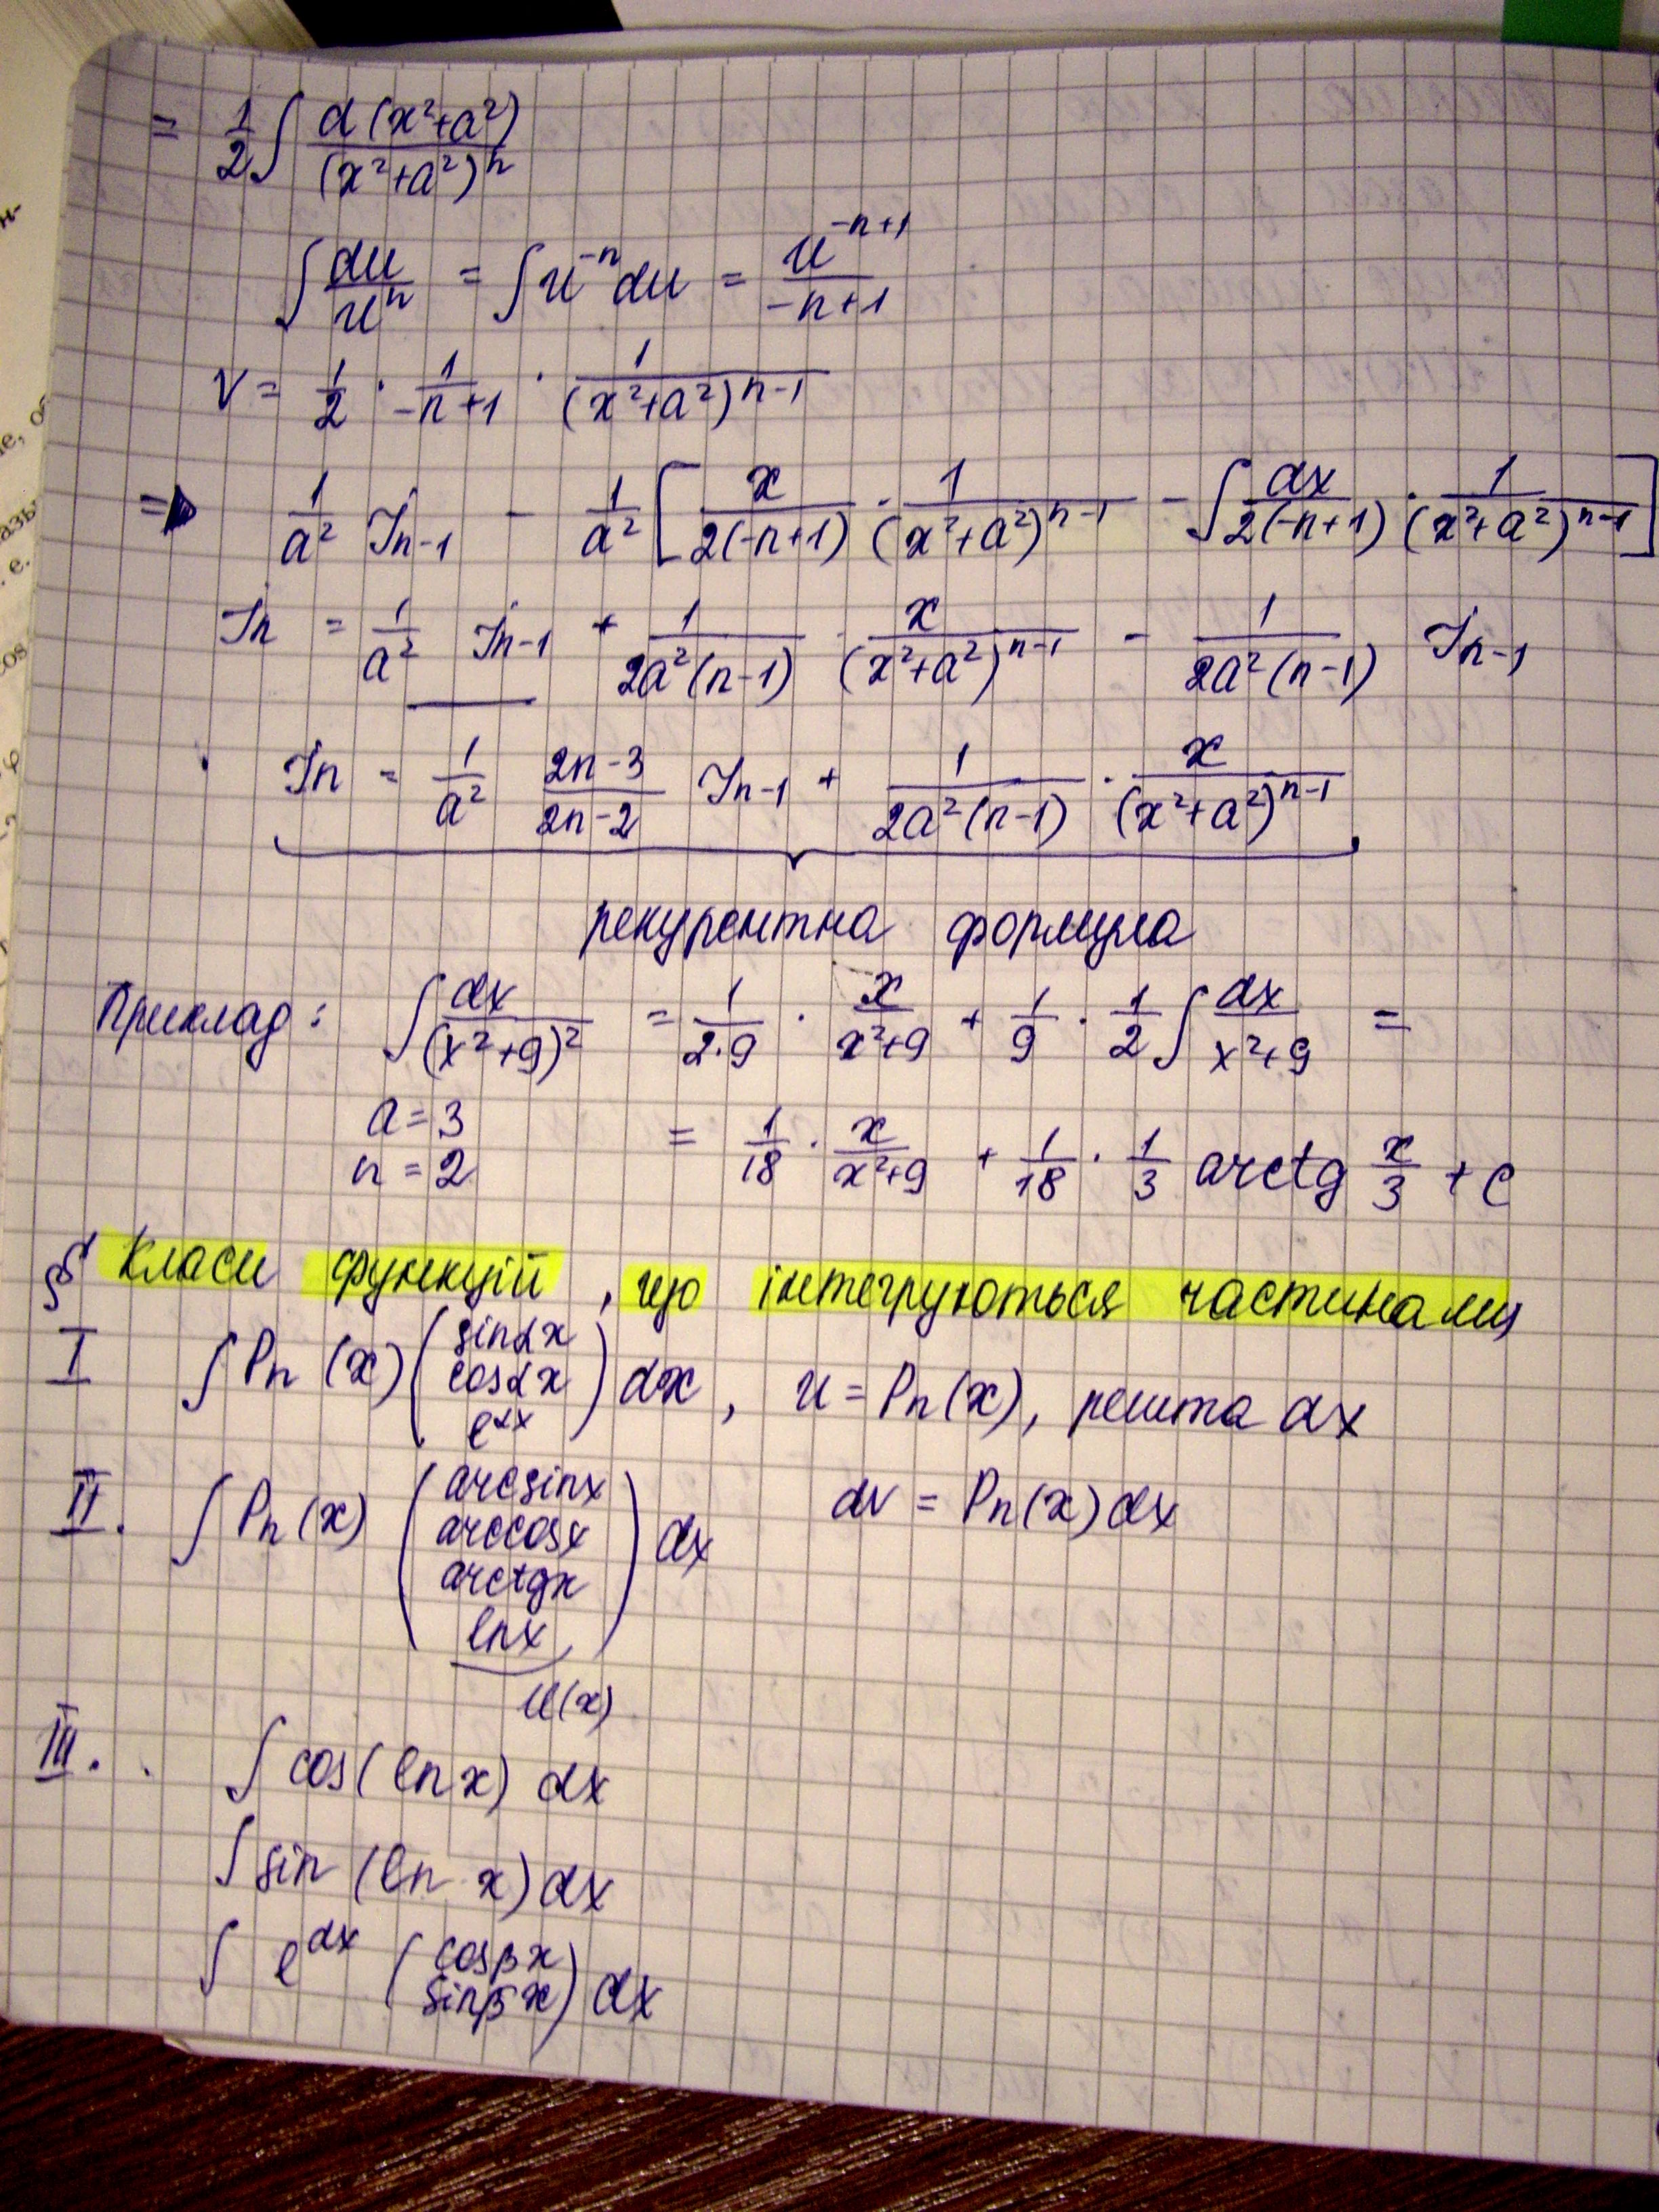 = 1/2 ∫ d(x²+a²)/(x²+a²)ⁿ
∫ du/uⁿ = ∫ u⁻ⁿ du = u⁻ⁿ⁺¹/(-n+1)
V = 1/2 · 1/(-n+1) · 1/(x²+a²)ⁿ⁻¹
=> 1/a² Jn-1 - 1/a² [ x/(2(-n+1)) · 1/(x²+a²)ⁿ⁻¹ - ∫ dx/(2(-n+1)) · 1/(x²+a²)ⁿ⁻¹ ]
Jn = 1/a² Jn-1 + 1/(2a²(n-1)) · x/(x²+a²)ⁿ⁻¹ - 1/(2a²(n-1)) Jn-1
Jn = 1/a² (2n-3)/(2n-2) Jn-1 + 1/(2a²(n-1)) · x/(x²+a²)ⁿ⁻¹,
рекурентна формула
Приклад: ∫ dx/(x²+9)² = 1/(2·9) · x/(x²+9) + 1/9 · 1/2 ∫ dx/(x²+9) =
a=3
n=2
= 1/18 · x/(x²+9) + 1/18 · 1/3 arctg x/3 + C
§ Класи функцій, що інтегруються частинами
I ∫ Pn(x) (sinαx cosαx e^αx) dx, u = Pn(x), решта dx
II. ∫ Pn(x) (arcsinx arccosx arctgx lnx) dx dv = Pn(x)dx
u(x)
III. ∫ cos(ln x) dx
∫ sin(ln x) dx
∫ e^αx (cosβx sinβx) dx